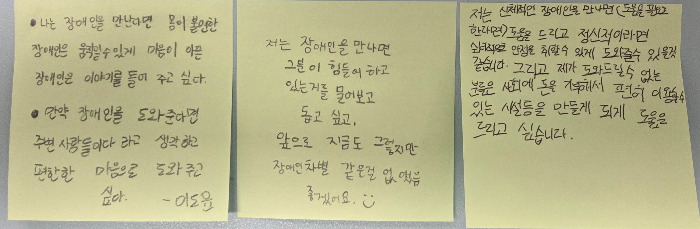 • 나는 장애인을 만난다면 몸이 불편한
장애인은 움직일수있게 마음이 아픈
장애인은 이야기를 들어 주고 싶다.
• 만약 장애인을 도와준다면
주변 사람들이다 라고 생각하고
편안한 마음으로 도와 주고
싶다. -이도윤
저는 장애인을 만나면
그분이 힘들어 하고
있는거를 물어보고
돕고 싶고,
앞으로 지금도 그렇지만
장애인차별 같은걸 없앴음
좋겠어요. :)
저는 신체적인 장애인을 만나면 (도움을 필요로
한다면) 도움을 드리고 정신적이라면
심리적으로 안정을 취할수 있게 도와줄수 있을것
같습니다. 그리고 제가 도와드릴수 없는
부분은 사회에 돈을 기부해서 편히 이용할수
있는 시설등을 만들게 되게 도움을
드리고 싶습니다.